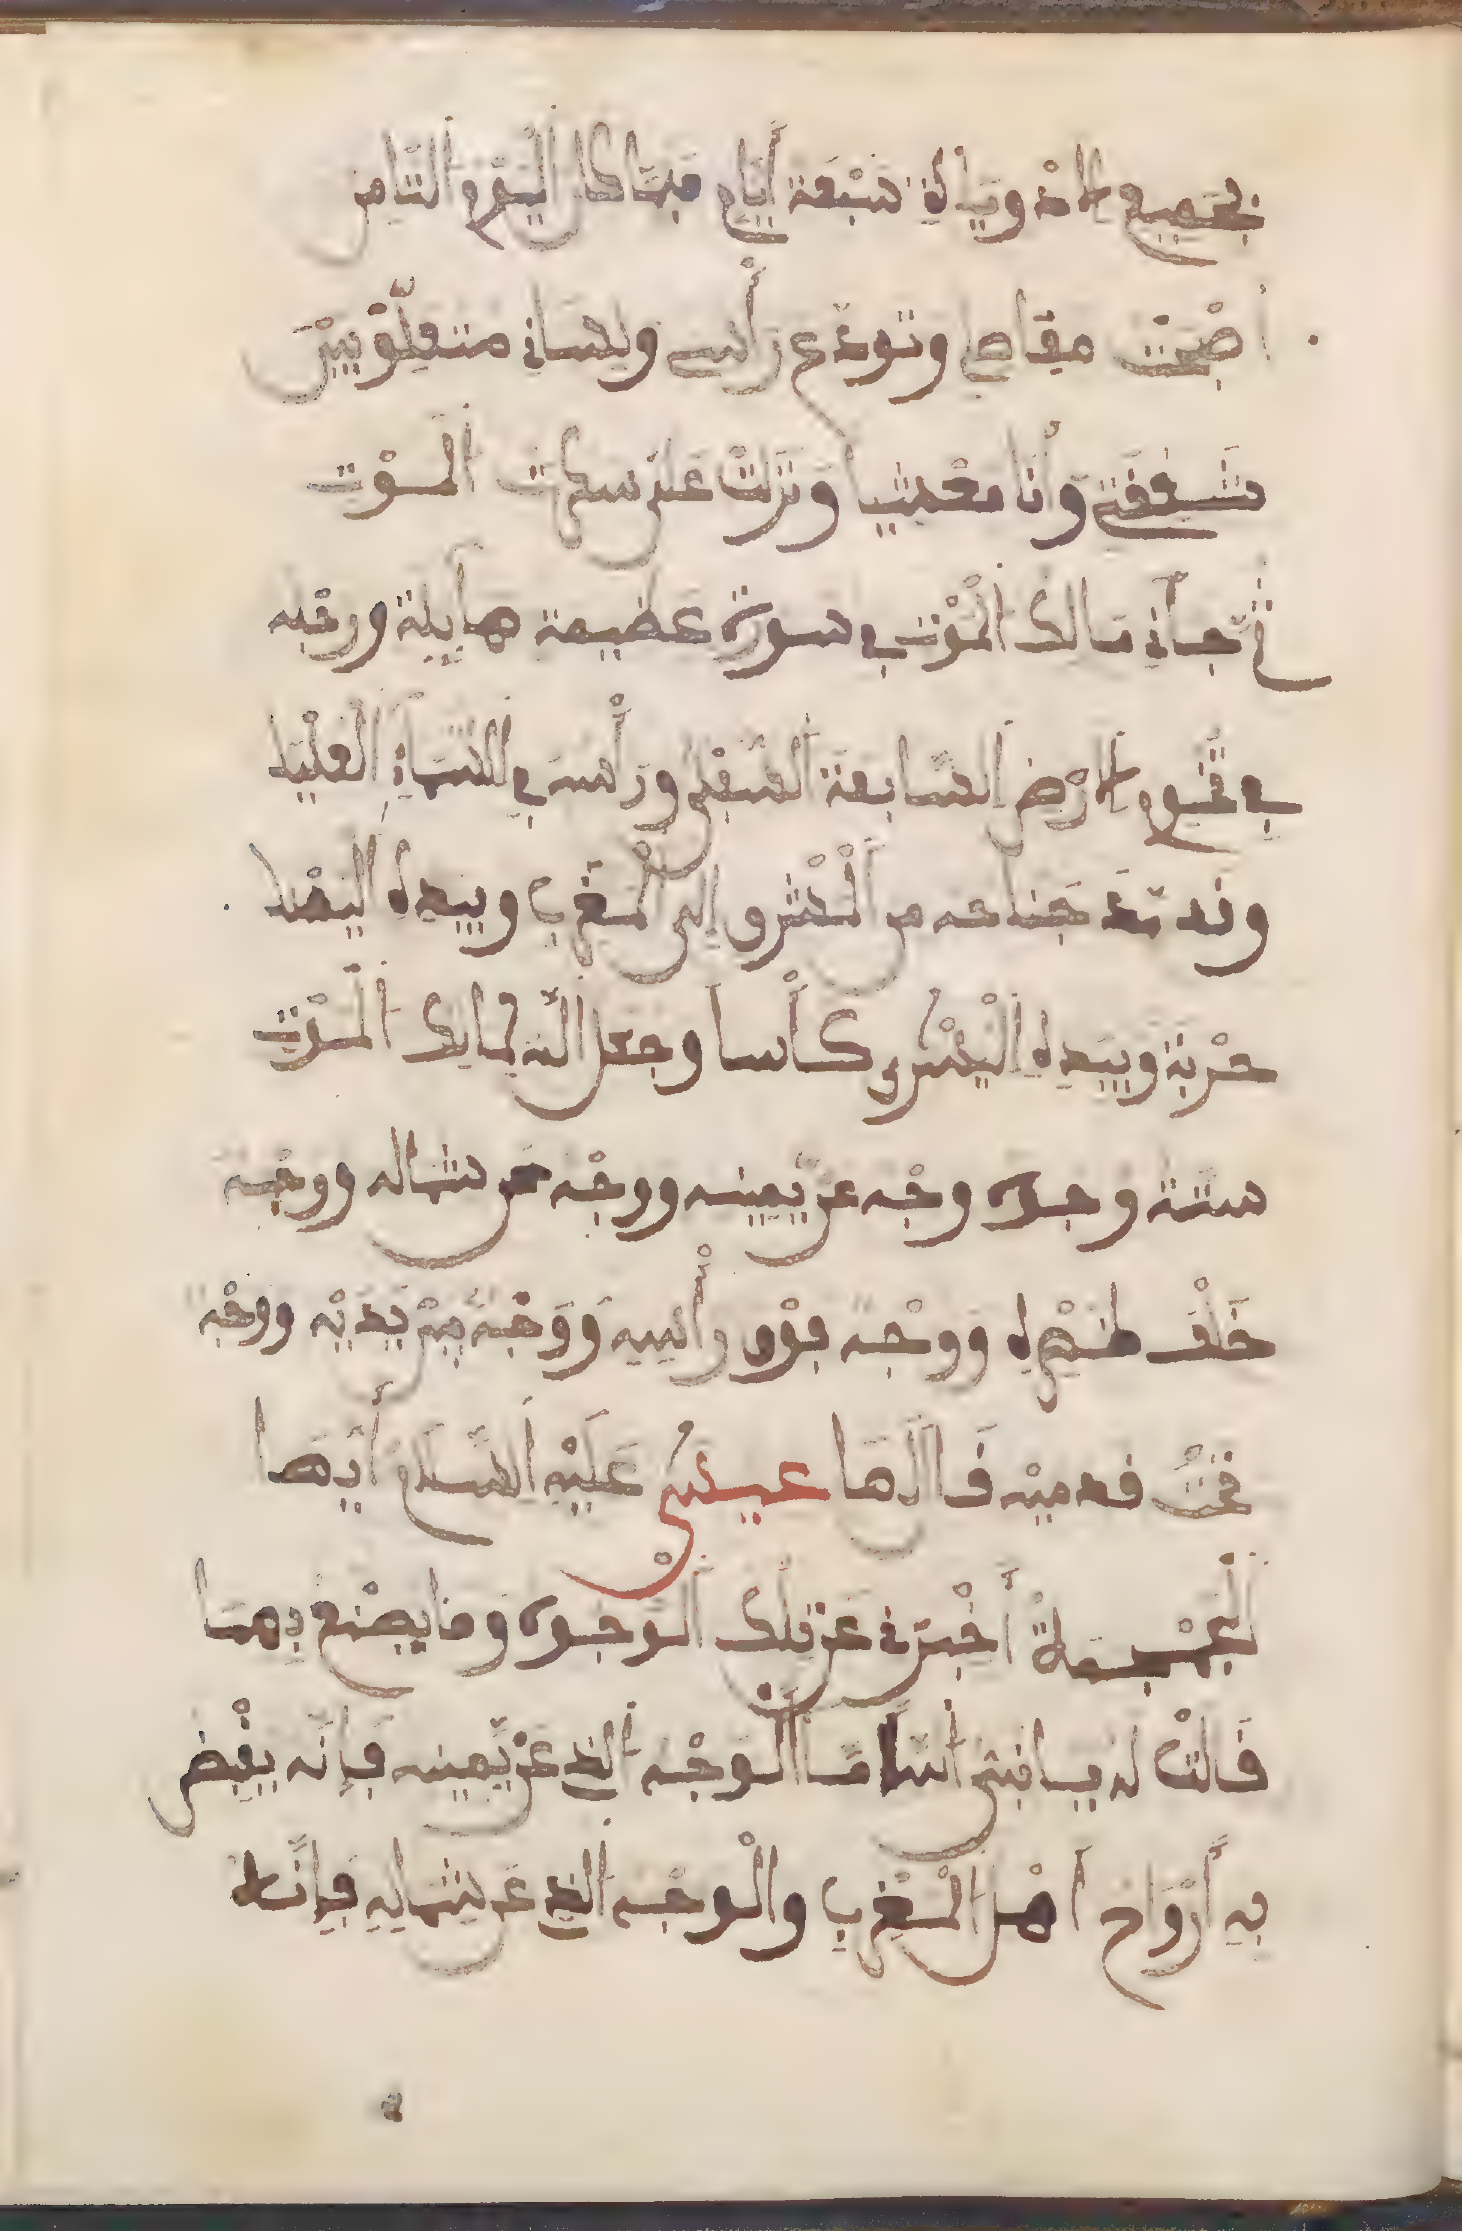 بجميع الادوياة سبعة أيام فلما كان اليوم الثامن
اصبحت مقامي وتودع رأسي ولساني متعلق بين
شففتي وأنا مغشيا ونزلت علي سكرات الموت
ثم جآني مالك الموت في سورة عظيمة هايلة ورجله
في تخوم الارض السابعة السفلى ورأسه في السمآء العليا
وقد مد جناحه من المشرق إلى المغرب وبيده اليمنا
حربة وبيده اليسرى كأسا وجعل الله لمالك الموت
ستة وجوه وجه عن يمينه ووجه عن شماله ووجه
خلف ظهره ووجه فوق رأسه ووجه بين يديه ووجه
تحت قدميه فال لها عيسى عليه السلام أيها
الجمجمة أخبرني عن تلك الوجوه وما يصنع بها
قالت له يا نبي الله أما الوجه الذي عن يمينه فإنه يقبض
به أرواح أهل المغرب والوجه الذي عن شماله فإنه